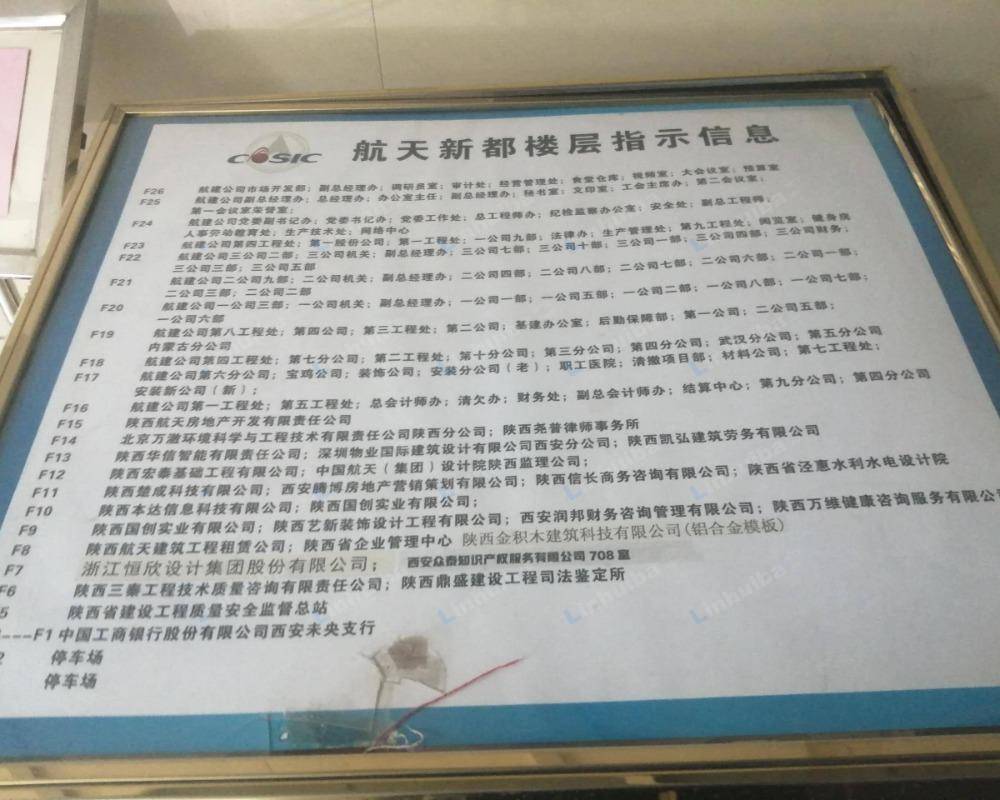 COSIC 航天新都楼层指示信息
F26 航建公司市场开发部；副总经理办；调研员室；审计处；经营管理处；食堂仓库；视频室；大会议室；预算室
F25 航建公司副总经理办；总经理办；办公室主任；副总经理办；秘书室；文印室；工会主席办；第二会议室；
第一会议室荣誉室；
F24 航建公司党委副书记办；党委书记办；党委工作处；总工程师办；纪检监察办公室；安全处；副总工程师；
人事劳动教育处；生产技术处；网络中心
F23 航建公司第四工程处；第一股份公司；第一工程处；一公司九部；法律办；生产管理处；第九工程处；阅览室；健身房
F22 航建公司三公司二部；三公司机关；副总经理办；三公司七部；三公司十部；三公司一部；三公司四部；三公司财务；
三公司三部；三公司五部
F21 航建公司二公司九部；二公司机关；副总经理办；二公司四部；二公司八部；二公司七部；二公司六部；二公司一部；
二公司三部；二公司二部
F20 航建公司一公司三部；一公司机关；副总经理办；一公司一部；一公司五部；一公司二部；一公司八部；一公司七部；
一公司六部
F19 航建公司第八工程处；第四公司；第三工程处；第二公司；基建办公室；后勤保障部；第一公司；二公司五部；
内蒙古分公司
F18 航建公司第四工程处；第七分公司；第二工程处；第十分公司；第三分公司；第四分公司；武汉分公司；第五分公司
F17 航建公司第六分公司；宝鸡公司；装饰公司；安装分公司（老）；职工医院；清撤项目部；材料公司；第七工程处；
安装新公司（新）；
F16 航建公司第一工程处；第五工程处；总会计师办；清欠办；财务处；副总会计师办；结算中心；第九分公司；第四分公司
F15 陕西航天房地产开发有限责任公司
F14 北京万澈环境科学与工程技术有限责任公司陕西分公司；陕西尧普律师事务所
F13 陕西华信智能有限责任公司；深圳物业国际建筑设计有限公司西安分公司；陕西凯弘建筑劳务有限公司
F12 陕西宏泰基础工程有限公司；中国航天（集团）设计院陕西监理公司；
F11 陕西楚成科技有限公司；西安腾博房地产营销策划有限公司；陕西信长商务咨询有限公司；陕西省泾惠水利水电设计院
F10 陕西本达信息科技有限公司；陕西国创实业有限公司；
F9 陕西国创实业有限公司；陕西艺新装饰设计工程有限公司；西安润邦财务咨询管理有限公司；陕西万维健康咨询服务有限公
F8 陕西航天建筑工程租赁公司；陕西省企业管理中心 陕西金积木建筑科技有限公司(铝合金模板)
F7 浙江恒欣设计集团股份有限公司； 西安众泰知识产权服务有限公司 708 室
F6 陕西三秦工程技术质量咨询有限责任公司；陕西鼎盛建设工程司法鉴定所
5 陕西省建设工程质量安全监督总站
---F1 中国工商银行股份有限公司西安未央支行
2 停车场
停车场